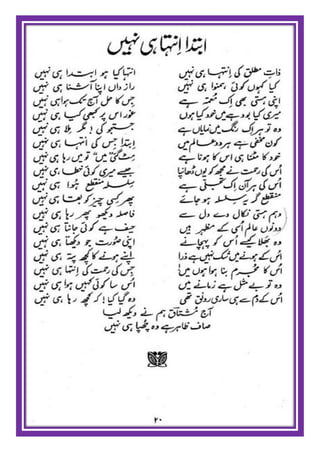 ابتدا اِنتہا ہی نہیں
ذاتِ مطلق کی اِنتہا ہی نہیں انتہا کیا ہو ابتدا ہی نہیں
کیا کہوں کوئی ہمنوا ہی نہیں راز داں اپنا آشنا ہی نہیں
اپنی ہستی بھی اِک معمّہ ہے جس کا حل آج تک ہوا ہی نہیں
میری کیا بود ہے میں خود کیا ہوں غور اس پر کبھی کیا ہی نہیں
وہ تو ہر اِک رنگ میں نمایاں ہے جستجو کی ! مگر ملا ہی نہیں
کون مخفی ہے ہر دو عالم میں ابتدا جس کی انتہا ہی نہیں
خود کا مٹنا ہی اس کا ہونا ہے مِٹ گئی "میں" تو میں رہا ہی نہیں
اُس کی رحمت نے مجھ کو یوں ڈھانپا جیسے میری کوئی خطا ہی نہیں
اُس کی ہر آن اِک تجلی ہے سلسلہ منقطع ہوا ہی نہیں
منقطع گر یہ سلسلہ ہو جائے پھر کسی چیز کو بقا ہی نہیں
وہمِ ہستی نکال دے دل سے فاصلہ دیکھو پھر رہا ہی نہیں
دونوں عالم اُسی کے مظہر ہیں حیف ہے کوئی جانتا ہی نہیں
وہ بھلا کیسے اُس کو پہچانے اپنی صورت جو دیکھتا ہی نہیں
اُس کے ہونے میں شک نہیں ہے ذرا اپنے ہونے کا کچھ پتہ ہی نہیں
اُس کا مجرم بنا ہوا ہوں میں! جس کی رحمت کی اِنتہا ہی نہیں
وہ تو بے مثل ہے زمانے میں اُس سا کوئی کہیں ہوا ہی نہیں
اُس کے دَم سے ہی ساری رونق تھی وہ گیا کیا! کہ کچھ رہا ہی نہیں
آج مُشتاق ہم نے دیکھ لیا
صاف ظاہر ہے وہ چھپا ہی نہیں
۲۰